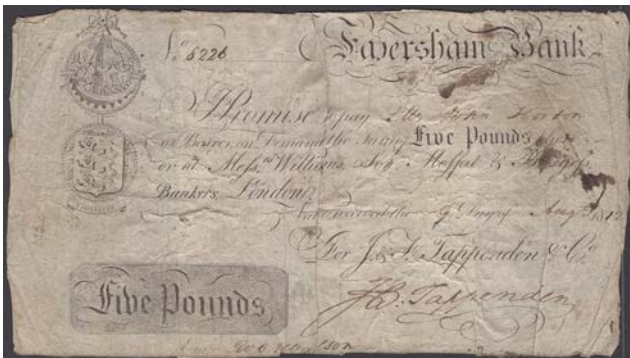 No. 5226 Faversham Bank
I Promise to pay Mr. John Horton
or Bearer, on Demand the Sum of Five Pounds here
or at Messrs. Williams, Son, Moffat &
Bankers, London,
Value received the 9 Day of Aug 1812
For J. & F. Tappenden & Co.
Five Pounds
Tappenden